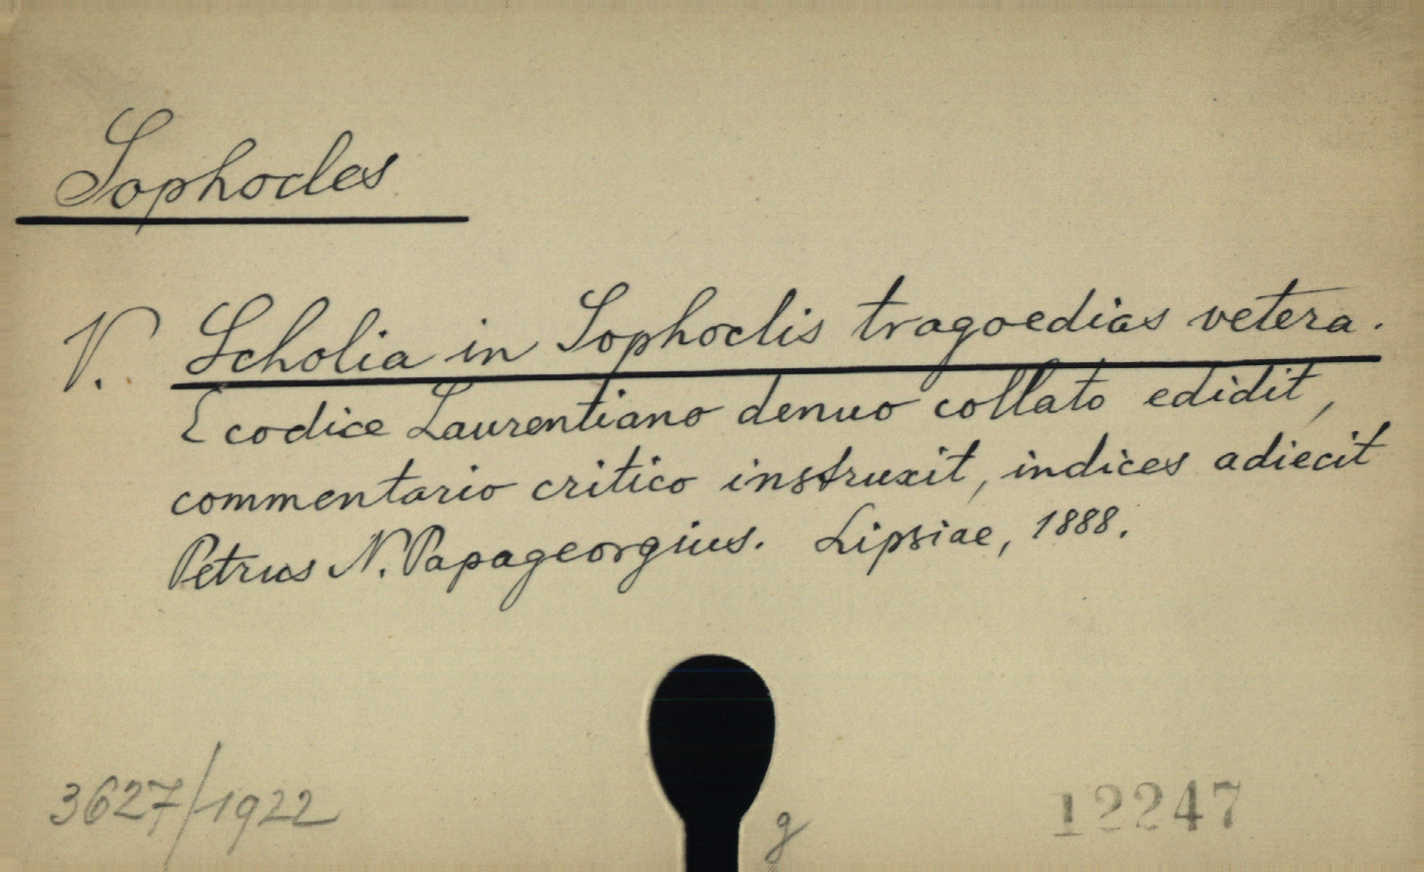 Sophocles
V. Scholia in Sophoclis tragoedias vetera.
E codice Laurentiano denuo collato edidit,
commentario critico instruxit, indices adiecit
Petrus N. Papageorgius. Lipsiae, 1888.
3627/1922
g
12247